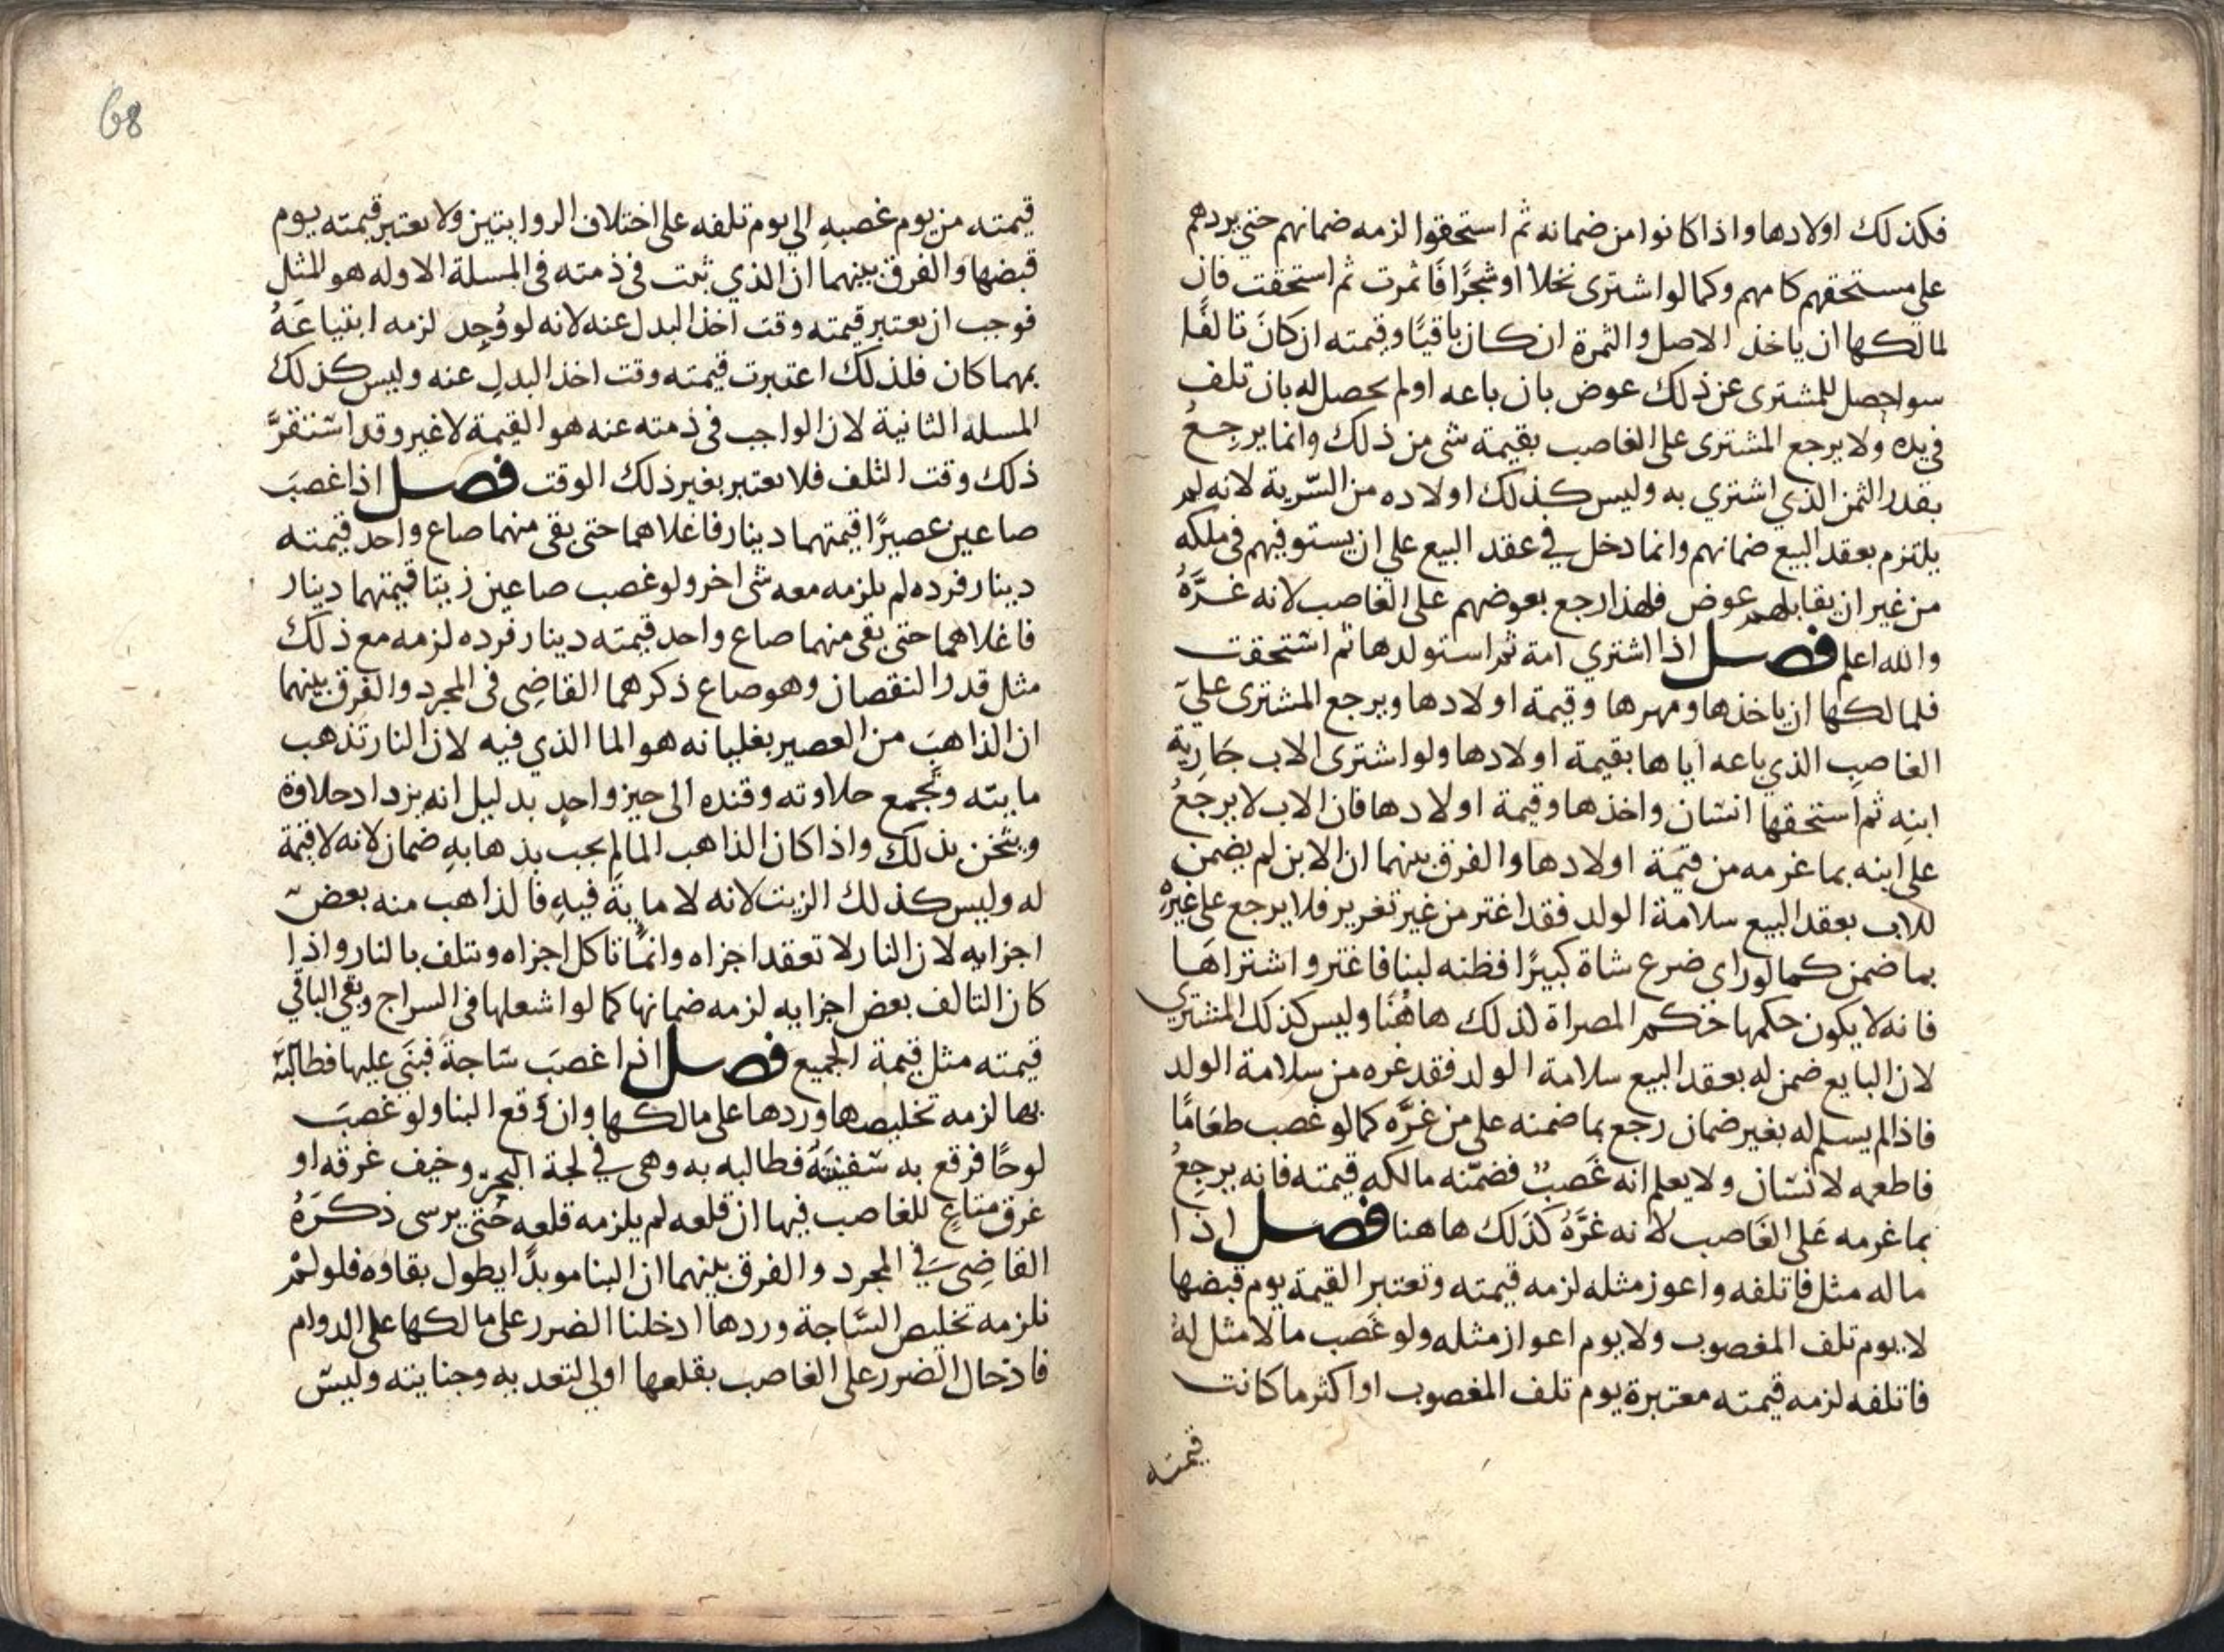 فكذلك اولادها واذا كانوا من ضمانه ثم استحقوا لزمه ضمانهم حتى يردهم
على مستحقهم كامهم وكما لو اشترى نخلا او شجرًا فاثمرت ثم استحقت فان
لمالكها ان ياخذ الاصل والثمرة ان كان باقيًا وقيمته ان كان تالفًا
سوا حصل للمشترى عن ذلك عوض بان باعه او لم يحصل له بان تلف
في يده ولا يرجع المشترى على الغاصب بقيمة شى من ذلك وانما يرجعُ
بقدر الثمن الذي اشتري به وليس كذلك اولاده من السّرية لانه لم
يلتزم بعقد البيع ضمانهم وانما دخل في عقد البيع علي ان يستوفيهم فى ملكه
من غير ان يقابلهم عوض فلهذا رجع بعوضهم على الغاصب لانه غَرَّهُ
والله اعلم فصل اذا اشتري امة ثم استولدها ثم استحقت
فلمالكها ان ياخذها ومهرها وقيمة اولادها ويرجع المشترى علي
الغاصب الذي باعه اياها بقيمة اولادها ولو اشترى الاب جارية
ابنه ثم استحقها انسان واخذها وقيمة اولادها فان الاب لا يرجعُ
على ابنه بما غرمه من قيمة اولادها والفرق بينهما ان الابن لم يضمن
للاب بعقد البيع سلامة الولد فقد اغتر من غير تغرير فلا يرجع على غيره
بما ضمن كما لو راى ضرع شاة كبيرًا فظنه لبنا فاغتر واشتراها
فانه لا يكون حكمها حكم المصراة لذلك هاهُنا وليس كذلك المشتري
لان البايع ضمن له بعقد البيع سلامة الولد فقد غره من سلامة الولد
فاذا لم يسلم له بغير ضمان رجع بما ضمنه على من غَرَّه كما لو غصب طعامًا
فاطعمه لانسان ولا يعلم انه غَصبٌ فضمّنه مالكه قيمته فانه يرجعُ
بما غرمه على الغاصب لانه غَرَّهُ كذلك هاهنا فصل اذا
ماله مثل فاتلفه واعوز مثله لزمه قيمته وتعتبر القيمة يوم قبضها
لا يوم تلف المغصوب ولا يوم اعواز مثله ولو غصب مالا مثل لهُ
فاتلفه لزمه قيمته معتبرة يوم تلف المغصوب او اكثر ما كانت
قيمته
68
قيمته من يوم غصبه الي يوم تلفه على اختلاف الروايتين ولا يعتبر قيمته يوم
قبضها والفرق بينهما ان الذي ثبت فى ذمته فى المسلة الاوله هو المثل
فوجب ان يعتبر قيمته وقت اخذ البدل عنه لانه لو وُجِد لزمه ابتياعَهُ
بمهما كان فلذلك اعتبرت قيمته وقت اخذ البدل عنه وليس كذلك
المسلة الثانية لان الواجب فى ذمته عنه هو القيمة لا غير وقد استقرَّ
ذلك وقت التلف فلا يعتبر بغير ذلك الوقت فصل اذا غصبَ
صاعين عصيرًا قيمتهما دينار فاغلاهما حتى بقى منهما صاع واحد قيمته
دينار فرده لم يلزمه معه شى اخر ولو غصب صاعين زيتا قيمتهما دينار
فاغلاهما حتى بقى منهما صاع واحد قيمته دينار فرده لزمه مع ذلك
مثل قدر النقصان وهو صاع ذكرهما القاضِى فى المجرد والفرق بينهما
ان الذاهب من العصير بغليانه هو الما الذي فيه لان النار تذهب
مايته وتجمع حلاوته وقنده الى حيز واحد بدليل انه يزداد حلاوة
ويثخن بذلك واذا كان الذاهب الما لم يجب بذهابه ضمان لانه لا قيمة
له وليس كذلك الزيت لانه لا ماية فيه فالذاهب منه بعض
اجزايه لان النار لا تعقد اجزاه وانما تاكل اجزاه ويتلف بالنار واذا
كان التالف بعض اجزايه لزمه ضمانها كما لو اشعلها فى السراج وبقي الباقي
قيمته مثل قيمة الجميع فصل اذا غصبَ ساجةً فبنَي عليها فطالبَه
بها لزمه تخليصها وردها على مالكها وان وقع البنا ولو غصبَ
لوحًا فرقع به سفينةً فطالبه به وهى في لجة البحر وخيف غرقه او
غرق متاع للغاصب فيها ان قلعه لم يلزمه قلعه حتى يرسى ذكَرهُ
القاضِى في المجرد والفرق بينهما ان البنا موبدًا يطول بقاوه فلو لم
نلزمه تخليص السّاجة وردها ادخلنا الضرر على مالكها على الدوام
فادخال الضرر على الغاصب بقلعها اولي لتعديه وجنايته وليسَ